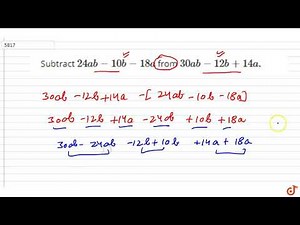 5817
Subtract 24ab − 10b − 18a from 30ab − 12b + 14a.
30ab - 12b + 14a - [ 24ab - 10b - 18a ]
30ab - 12b + 14a - 24ab + 10b + 18a
30ab - 24ab - 12b + 10b + 14a + 18a